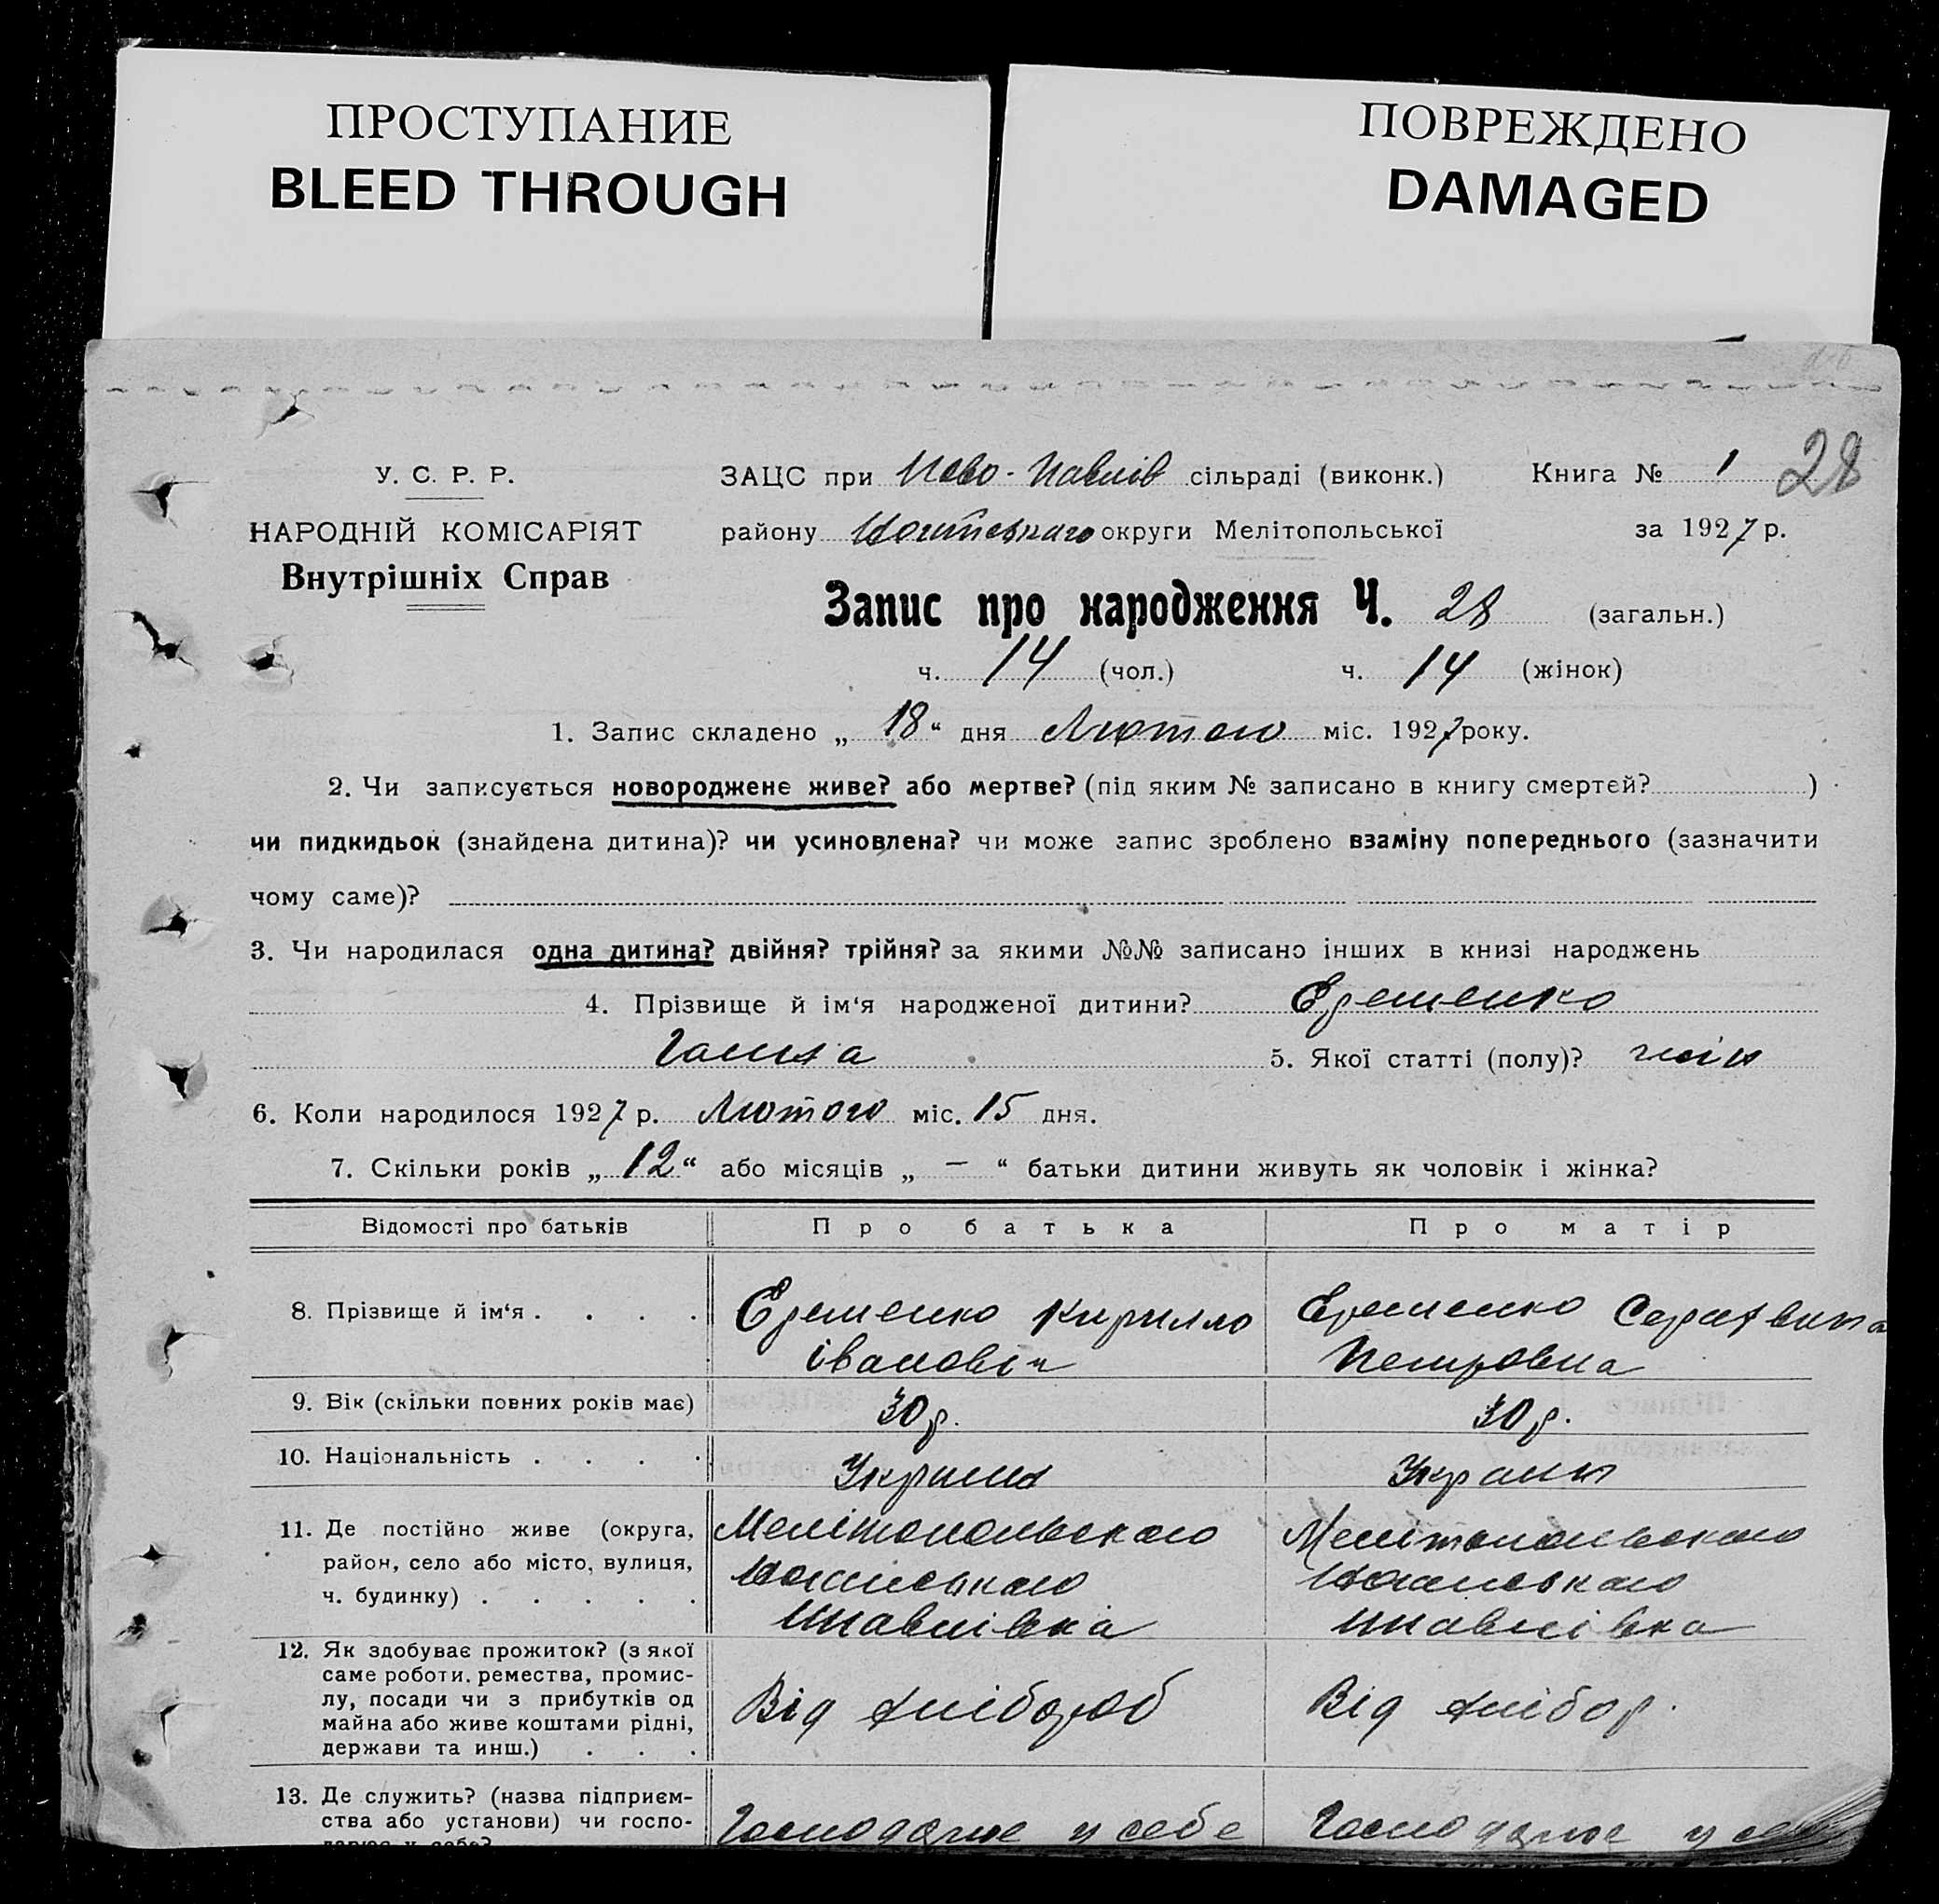 ПРОСТУПАНИЕ
BLEED THROUGH
ПОВРЕЖДЕНО
DAMAGED
У. С. Р. Р.
НАРОДНІЙ КОМІСАРІЯТ
Внутрішніх Справ
ЗАЦС при Ново-Павлів сільраді (виконк.)
району округи Мелітопольської
Книга № 1 28
за 1927 р.
Запис про народження Ч. 28 (загальн.)
ч. 14 (чол.) ч. 14 (жінок)
1. Запис складено „ 18 “ дня Лютого міс. 1927 року.
2. Чи записується новороджене живе? або мертве? (під яким № записано в книгу смертей? )
чи пидкидьок (знайдена дитина)? чи усиновлена? чи може запис зроблено взаміну попереднього (зазначити
чому саме)?
3. Чи народилася одна дитина? двійня? трійня? за якими №№ записано інших в книзі народжень
4. Прізвище й ім‘я народженої дитини? Еременко
5. Якої статті (полу)? жін
6. Коли народилося 1927 р. Лютого міс. 15 дня.
7. Скільки років „ 12 “ або місяців „ — “ батьки дитини живуть як чоловік і жінка?
Відомості про батьків Про батька Про матір
8. Прізвище й ім‘я . . . . Еременко Кирилло Еременко
Іванович Петровна
9. Вік (скільки повних років має) 30 р. 30 р.
10. Національність . . . . Украин
11. Де постійно живе (округа, Мелітопольського Мелітопольського
район, село або місто, вулиця,
ч. будинку) . . . . . Нпавлівка Нпавлівка
12. Як здобуває прожиток? (з якої
саме роботи, ремества, промис-
лу, посади чи з прибутків од Від хлібороб Від хлібор.
майна або живе коштами рідні,
держави та инш.) . . .
13. Де служить? (назва підприєм-
ства або установи) чи госпо- Господарює у себе Господарює у
дарює у себе?